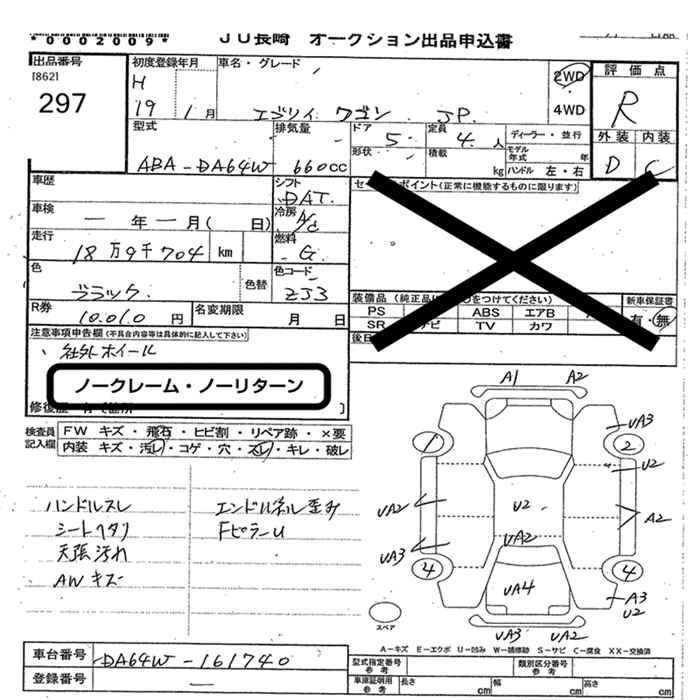 *0002009* JU長崎 オークション出品申込書
出品番号
[862]
297
初度登録年月
H
19 1月
車名・グレード
エブリイ ワゴン JP.
2WD
4WD
評価点
R
外装 内装
D C
型式
ABA-DA64W
排気量
660cc
ドア 5
形状
定員 4人
積載 kg
ディーラー・並行
モデル年式 年
ハンドル 左・右
車歴
シフト
DAT.
セ ポイント(正常に機能するものに限ります)
車検
一年一月( 日)
冷房
A/c
走行
18万9千704 km
燃料
G.
色
ブラック.
色替
色コード
ZJ3
装備品(純正品に をつけてください)
PS ABS エアB
SR ナビ TV カワ
新車保証書
有・無
R券
10.010円
名変期限
月 日
後日
注意事項申告欄(不具合内容等は具体的に記入して下さい)
、社外ホイール
ノークレーム・ノーリターン
修復歴
検査員
記入欄
FW キズ・飛石・ヒビ割・リペア跡・×要
内装 キズ・汚レ・コゲ・穴・スレ・キレ・破レ
ハンドルスレ
シートヘタリ
天張汚れ
AWキズ
エンドパネル歪み
FピラーU
A1 A2
UA3
1 2
U2
UA2 U2 A2
UA2
UA3
4 UA4 4
A3
U2
UA3 UA2
スペア
A-キズ E-エクボ U-凹み W-補修跡 S-サビ C-腐食 XX-交換済
車台番号 DA64W-161740
登録番号 —
型式指定番号
参考
類別区分番号
参考
車庫証明用
参考
長さ cm 幅 cm 高さ cm